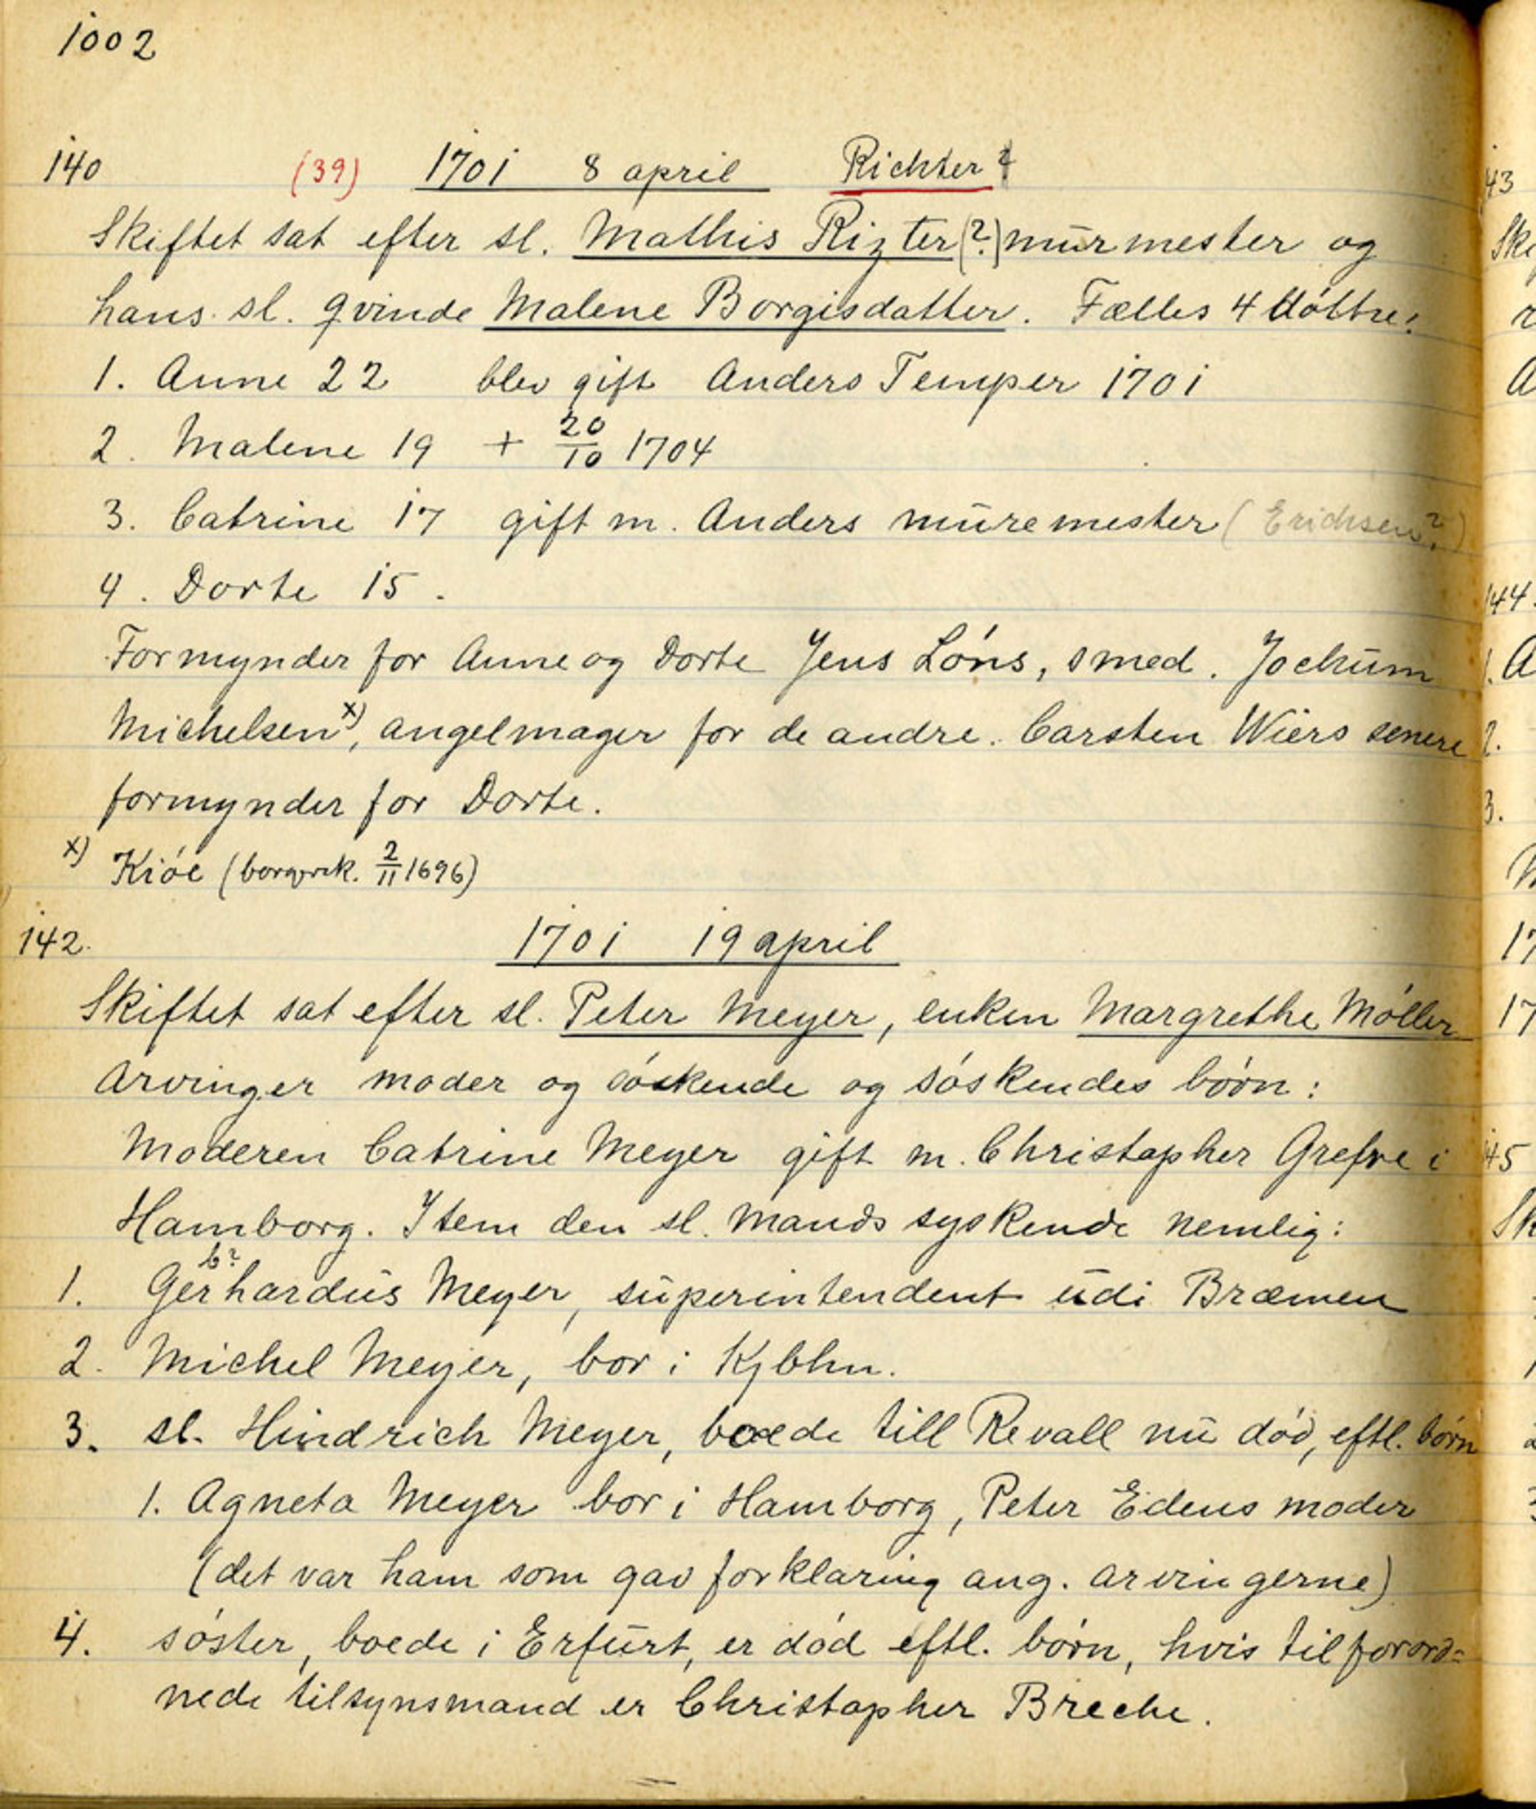 1002
140 (39) 1701 8 april Richter?
Skiftet sat efter sl. Mathis Rizter(?) mūrmester og
hans sl. qvinde Malene Borgisdatter. Fælles 4 døttre:
1. Anne 22 blev gift Anders Temper 1701
2. Malene 19 + 20/10 1704
3. Catrine 17 gift m. Anders mūremester (Erichsen?)
4. Dorte 15.
Formynder for Anne og Dorte Jens Lóns, smed. Jochūm
Michelsen x), angelmager for de andre. Carsten Wiers senere
formynder for Dorte.
x) Kióe (borgersk. 2/11 1696)
142. 1701 19 april
Skiftet sat efter sl. Peter Meyer, enken Margrethe Móller
Arvinger moder og sóskende og sóskendes bórn:
Moderen Catrine Meyer gift m. Christopher Grefve i
Hamborg. Item den sl. mands syskende nemlig:
b?
1. Gerhardūs Meyer, sūperintendent ūdi Bræmen
2. Michel Meyer, bor i Kjbhn.
3. sl. Hindrich Meyer, boede till Revall nū dód, eftl. bórn
1. Agneta Meyer bor i Hamborg, Peter Edens moder
(det var ham som gav forklaring ang. arvingerne)
4. sóster, boede i Erfūrt, er dód eftl. bórn, hvis tilforord=
nede tilsynsmand er Christopher Breche.